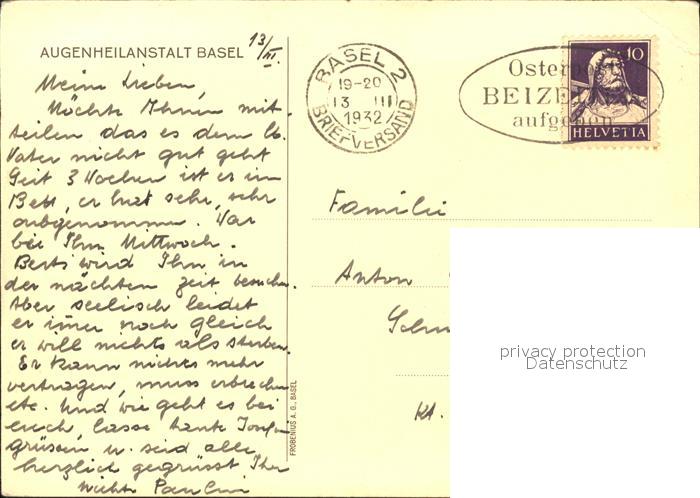 AUGENHEILANSTALT BASEL
13/III.
Meine Lieben,
Möchte Ihnen mit-
teilen das es dem lb.
Vater nicht gut geht
Seit 3 Wochen ist er im
Bett, er hat sehr, sehr
abgenommen. War
bei Ihm Mittwoch.
Berti wird Ihn in
der nächten zeit besuchen.
Aber seelisch leidet
er imer noch gleich
er will nichts als sterben.
Er kann nichts mehr
vertragen, muss erbrechen
etc. Und wie geht es bei
euch, lasse tante
grüssen u. seid alle
herzlich gegrüsst Ihre
nichte Paulin
FROBENIUS A. G., BASEL
BASEL 2
19-20
13 III
1932
BRIEFVERSAND
Osterpost
BEIZEITEN
aufgeben
10
HELVETIA
Familie
Anton
Kt.
privacy protection
Datenschutz